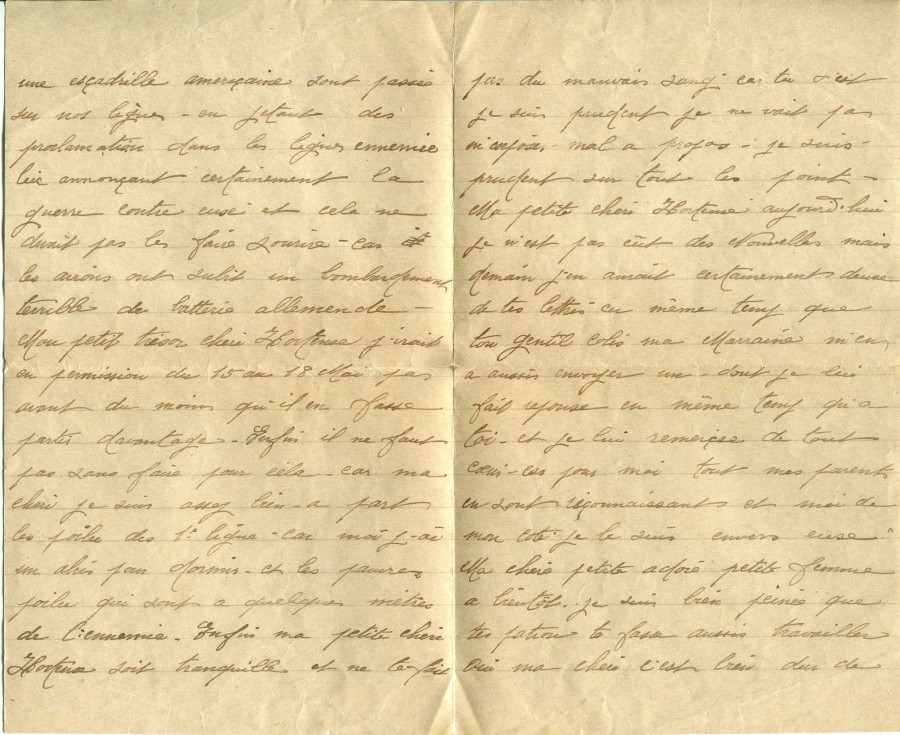 une esçadrille amerçaine sont passée
sur nos ligne - en jetant des
proclamation dans les ligne ennemiee
leur annonçant certainement la
guerre contre euse et cela ne
devait pas les faire sourire - car
les avions ont subit un bombardement
terrible des batterie allemende -
Mon petit trésor cheri Hortense j'irait
en permission du 15 au 18 Mai pas
avant du moins qu'il en fasse
partir davantage - Enfin il ne faut
pas sans faire pour cela - car ma
cheri je suis assez bien - a part
les poilu des 1º ligne - car moi j-ai
un abris pour dormir - et les pauvres
poilu qui sont a quelques mètres
de l'ennemie. Enfin ma petite cheri
Hortense soit tranquille et ne te fait
pas du mauvais sang car tu sait
je suis prudent je ne vait pas
m'exposer - mal a propos - je suis -
prudent sur tout les point -
Ma petite cheri Hortense aujourd'hui
je n'est pas eût des Nouvelles mais
demain j'en aurait certainement deuse
de tes lettres en même temp que
ton gentil colis ma Marraine m'en
a aussis envoyer un - dont je lui
fait reponse en même temp qu'a
toi - et je lui remerçee de tout
cœur - car pour moi tout mes parent
en sont réçonnaissant et moi de
mon coté je le suis envers euse
Ma cheri petite adoré petite femme
a bientôt. je suis bien peinée que
tes patron te fasse aussis travailler
Oui ma cheri c'est bien dur de